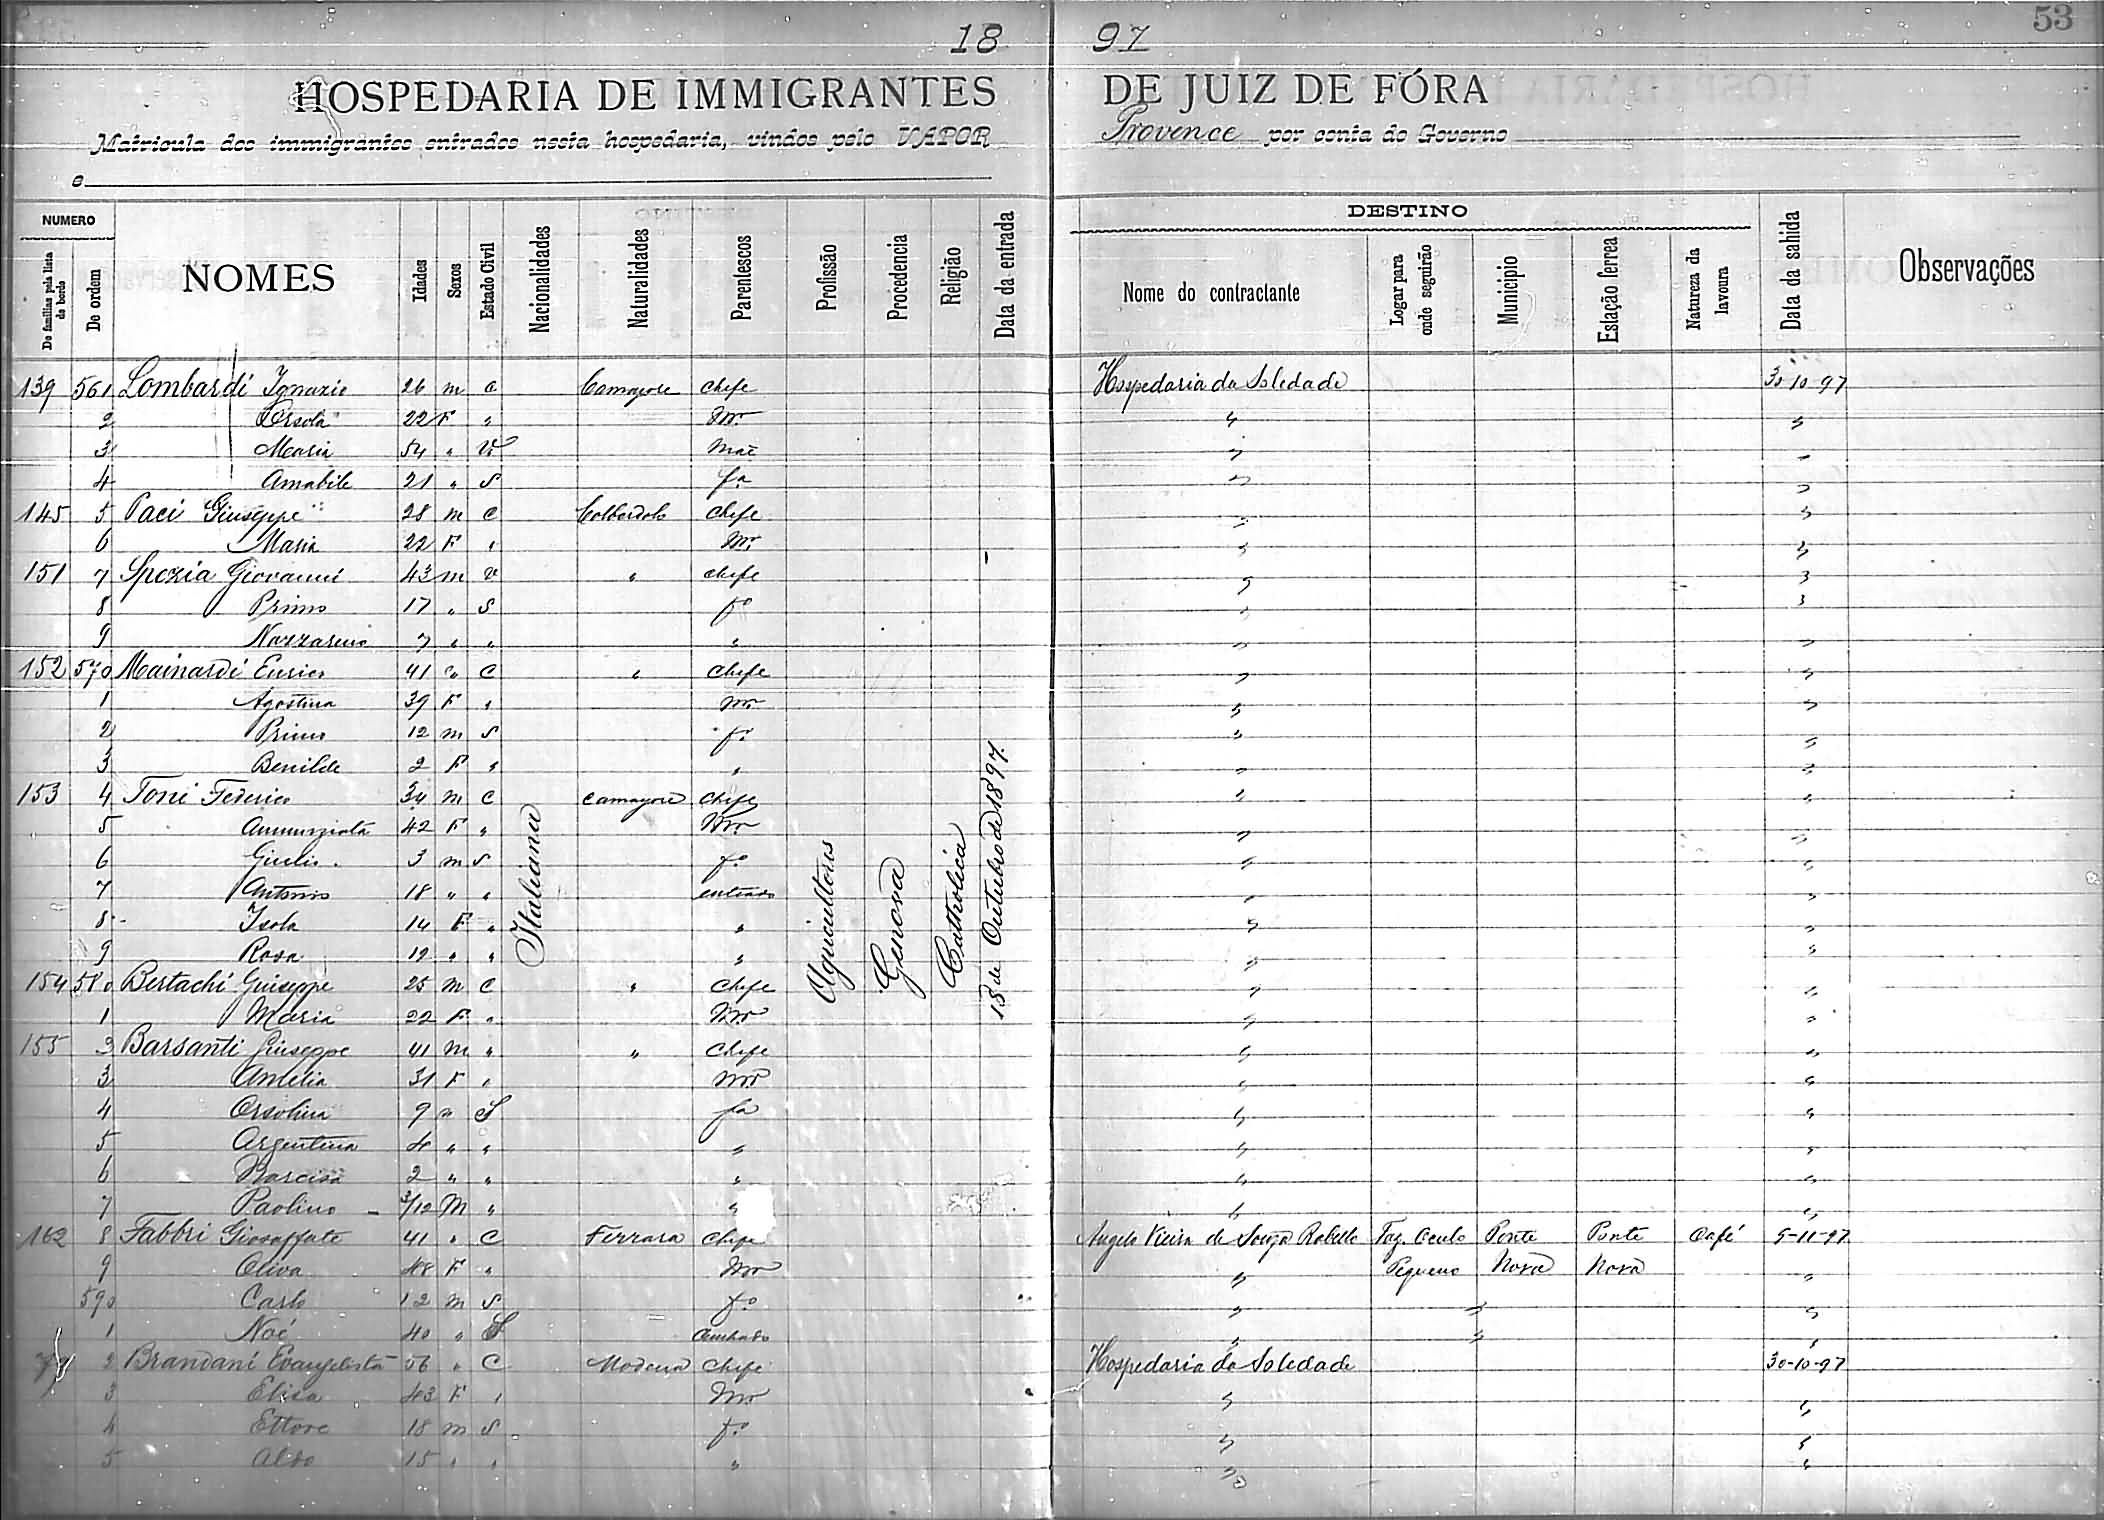 53
18 97
HOSPEDARIA DE IMMIGRANTES DE JUIZ DE FÓRA
Matricula dos immigrantes entrados nesta hospedaria, vindos pelo VAPOR Provence por conta do Governo
e
NUMERO
De familias pela lista de bordo
De ordem
NOMES
Idades
Sexos
Estado Civil
Nacionalidades
Naturalidades
Parentescos
Profissão
Procedencia
Religião
Data da entrada
DESTINO
Nome do contractante
Logar para onde seguirão
Municipio
Estação ferrea
Natureza da lavoura
Data da sahida
Observações
139 561 Lombardi Ignazio 26 m c Camayore Chefe Hospedaria da Soledade 30-10-97
2 Ersola 22 F " Mr. " "
3 Maria 54 " V Mãe " "
4 Amabile 21 " S fa " "
145 5 Paci Giuseppe 28 m c Colbordolo Chefe " "
6 Maria 22 F " Mr. " "
151 7 Spezia Giovanni 43 m v " Chefe " "
8 Primo 17 " S fo " "
9 Nazzareno 7 " " " " "
152 570 Mainardi Enrico 41 " C " Chefe " "
1 Agostina 39 F " Mr " "
2 Primo 12 m S fo " "
3 Benilde 2 F " " " "
153 4 Toni Federico 34 m C Camayore Chefe " "
5 Annunziata 42 F " Mr " "
6 Giulio 3 m S fo " "
7 Antonio 18 " " enteado " "
8 Isola 14 F " " " "
9 Rosa 12 " " " " "
154 580 Bertachi Giuseppe 25 m C " Chefe " "
1 Maria 22 F " Mr " "
155 2 Barsanti Giuseppe 41 m " " Chefe " "
3 Amelia 31 F " Mr " "
4 Orsolina 9 " S fa " "
5 Argentina 4 " " " " "
6 Narcisa 2 " " " " "
7 Paolino 3/12 M " " " "
162 8 Fabbri Giosaffate 41 " C Ferrara Chefe Angelo Vieira de Souza Rabello Faz. Oculo Ponte Ponte Café 5-11-97
9 Oliva 48 F " Mr " Pequeno Nova Nova "
590 Carlo 12 m S fo " " "
1 Noé 40 " S Cunhado " " "
2 Brandani Evangelista 56 " C Modena Chefe Hospedaria da Soledade 30-10-97
3 Elisa 43 F " Mr " "
4 Ettore 18 m S fo " "
5 Aldo 15 " " " " "
Italiana
Agricultores
Genova
Catholica
15 de Outubro de 1897.